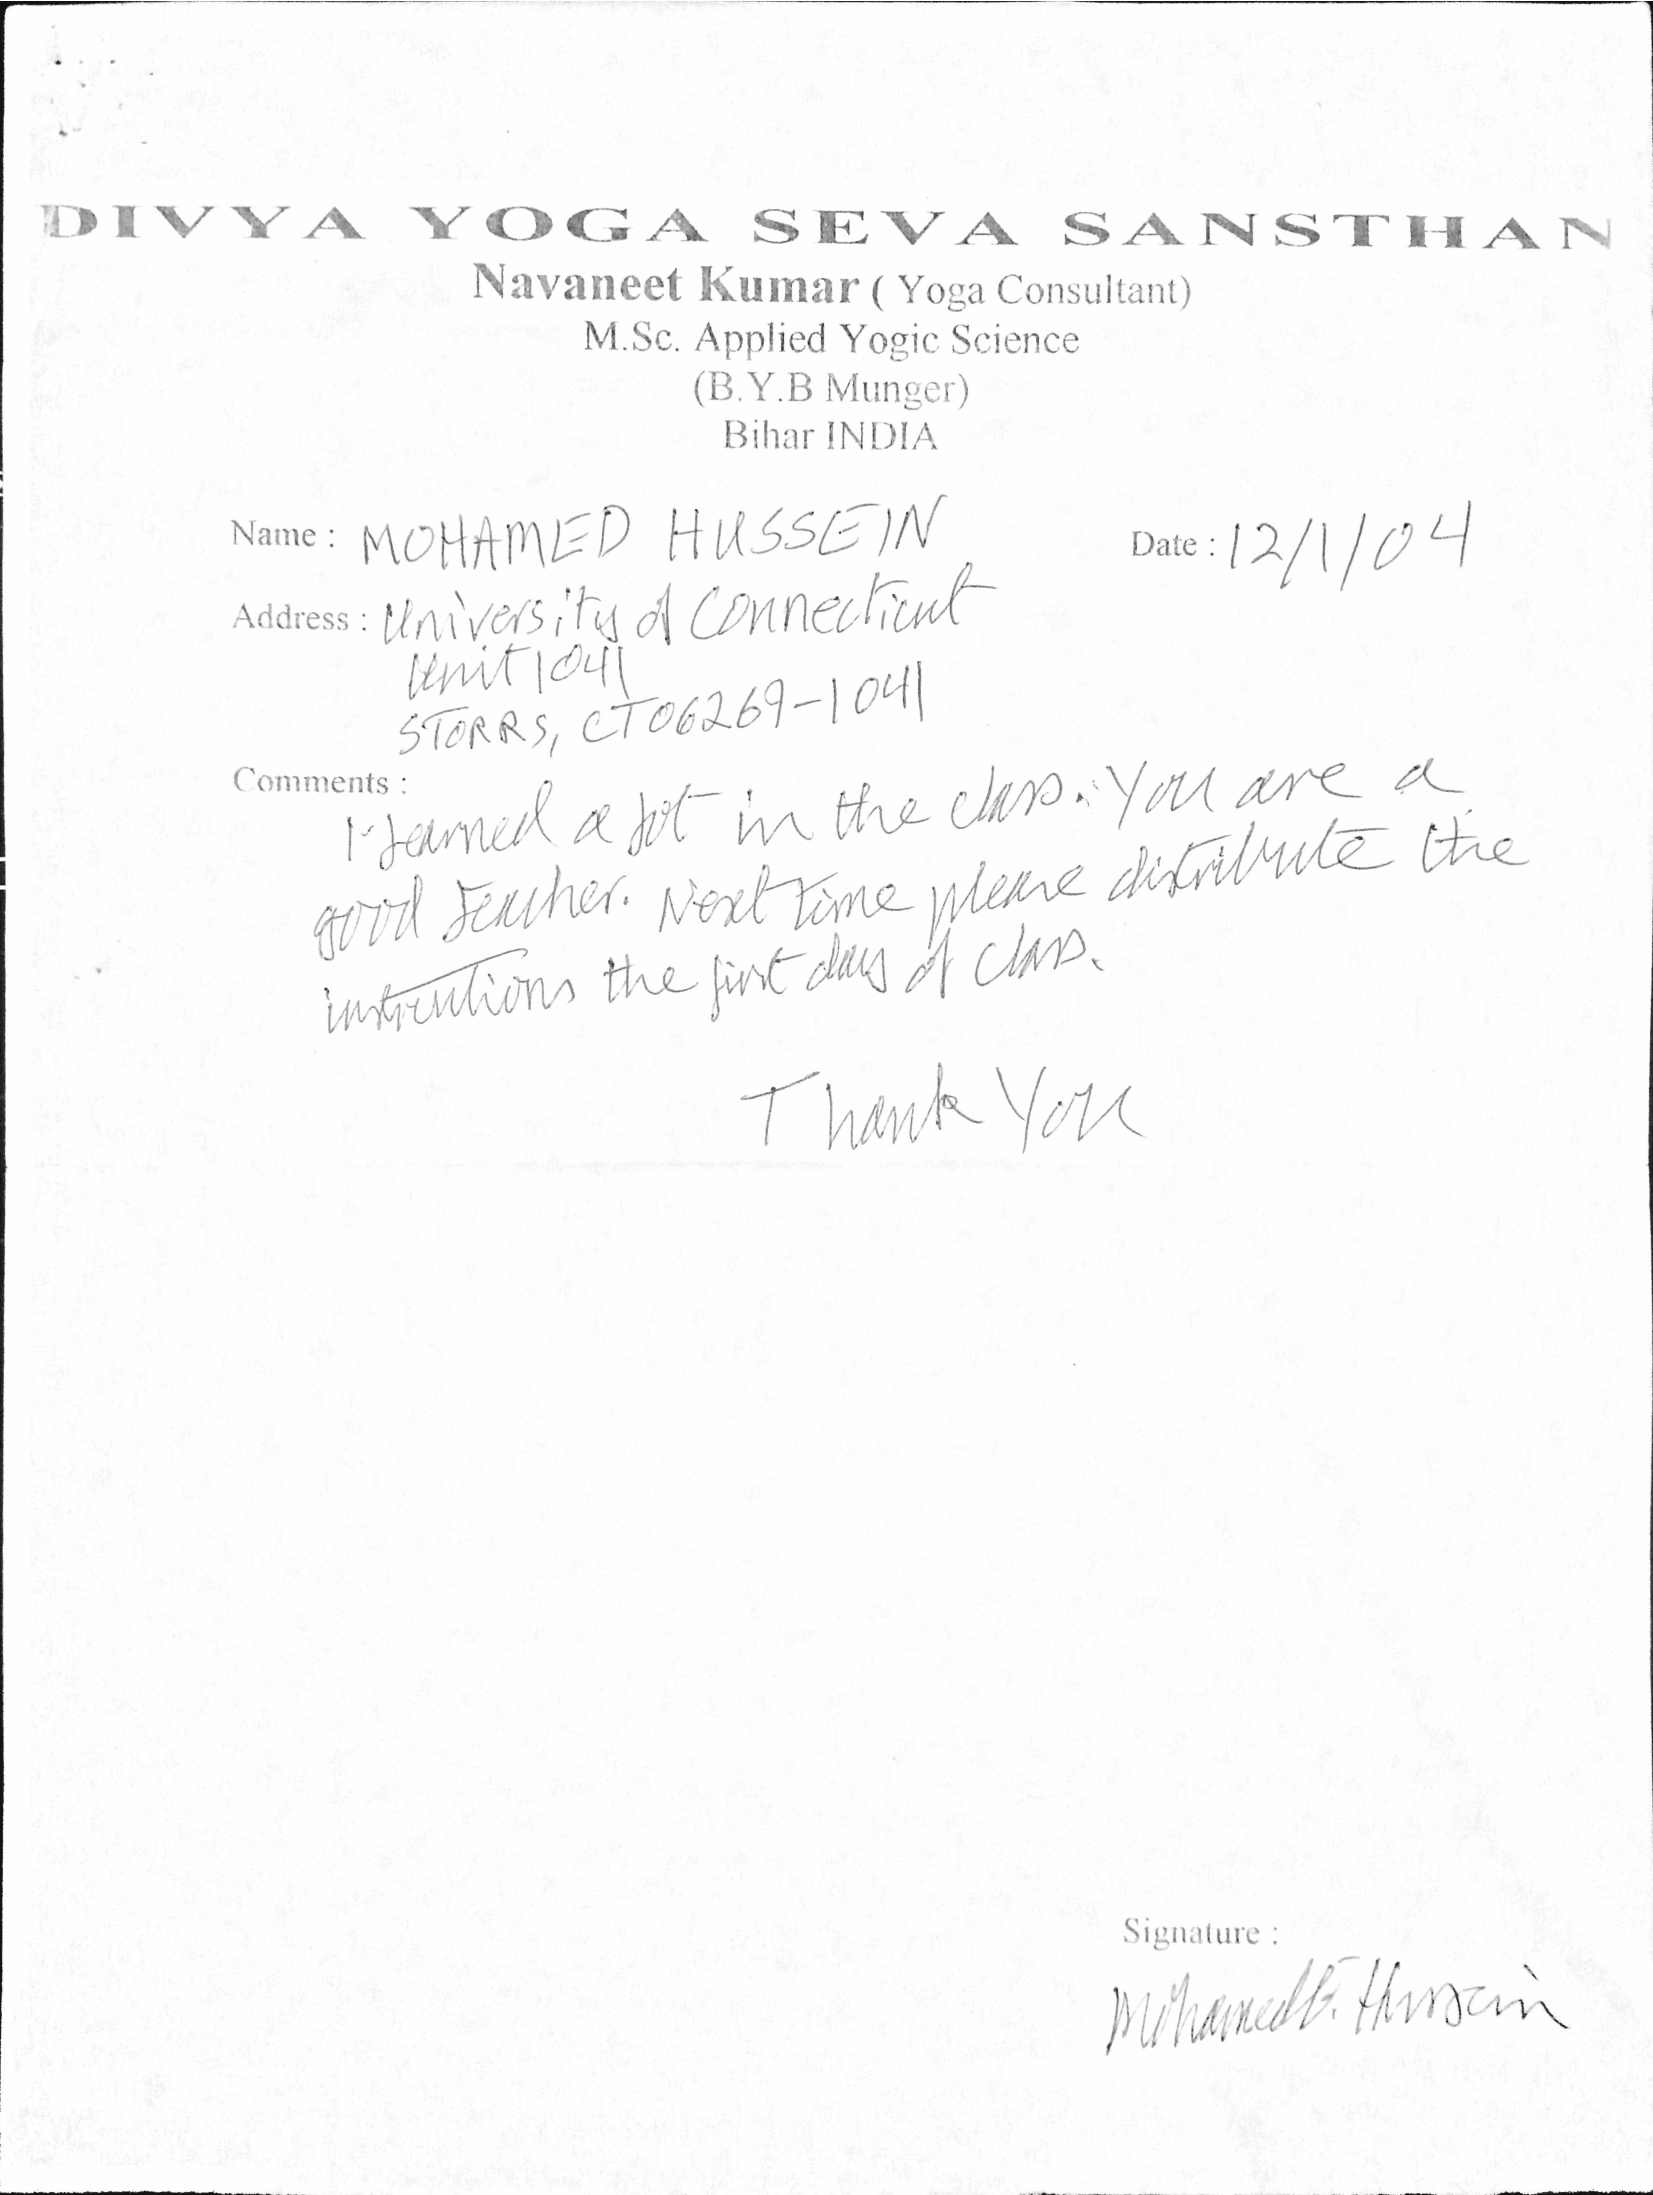 DIVYA YOGA SEVA SANSTHAN
Navaneet Kumar ( Yoga Consultant)
M.Sc. Applied Yogic Science
(B.Y.B Munger)
Bihar INDIA
Name : MOHAMED HUSSEIN Date : 12/1/04
Address : University of Connecticut
Unit 1041
STORRS, CT 06269-1041
Comments :
I learned a lot in the class. You are a
good teacher. Next time please distribute the
instructions the first day of class.
Thank You
Signature :
Mohamed G. Hussein